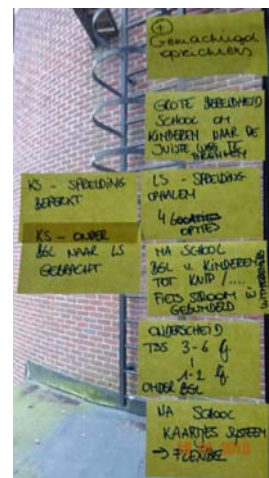 +
Gemachtigd
opzichters
GROTE BEREIDHEID
SCHOOL OM
KINDEREN NAAR DE
JUISTE WEG TE
BRENGEN
KS - SPREIDING
BEPERKT
KS - ONDER
BGL NAAR LS
GEBRACHT
LS - SPREIDING
OPHALEN
4
OPTIES
NA SCHOOL
BGL v. KINDEREN
TOT KNIP / ....
FIETS STROOM
GEBUNDELD
ONDERSCHEID
TSS 3-6 lj.
1-2 lj.
ONDER BGL
NA SCHOOL
KAARTJES SYSTEEM
→ FLEXIBEL